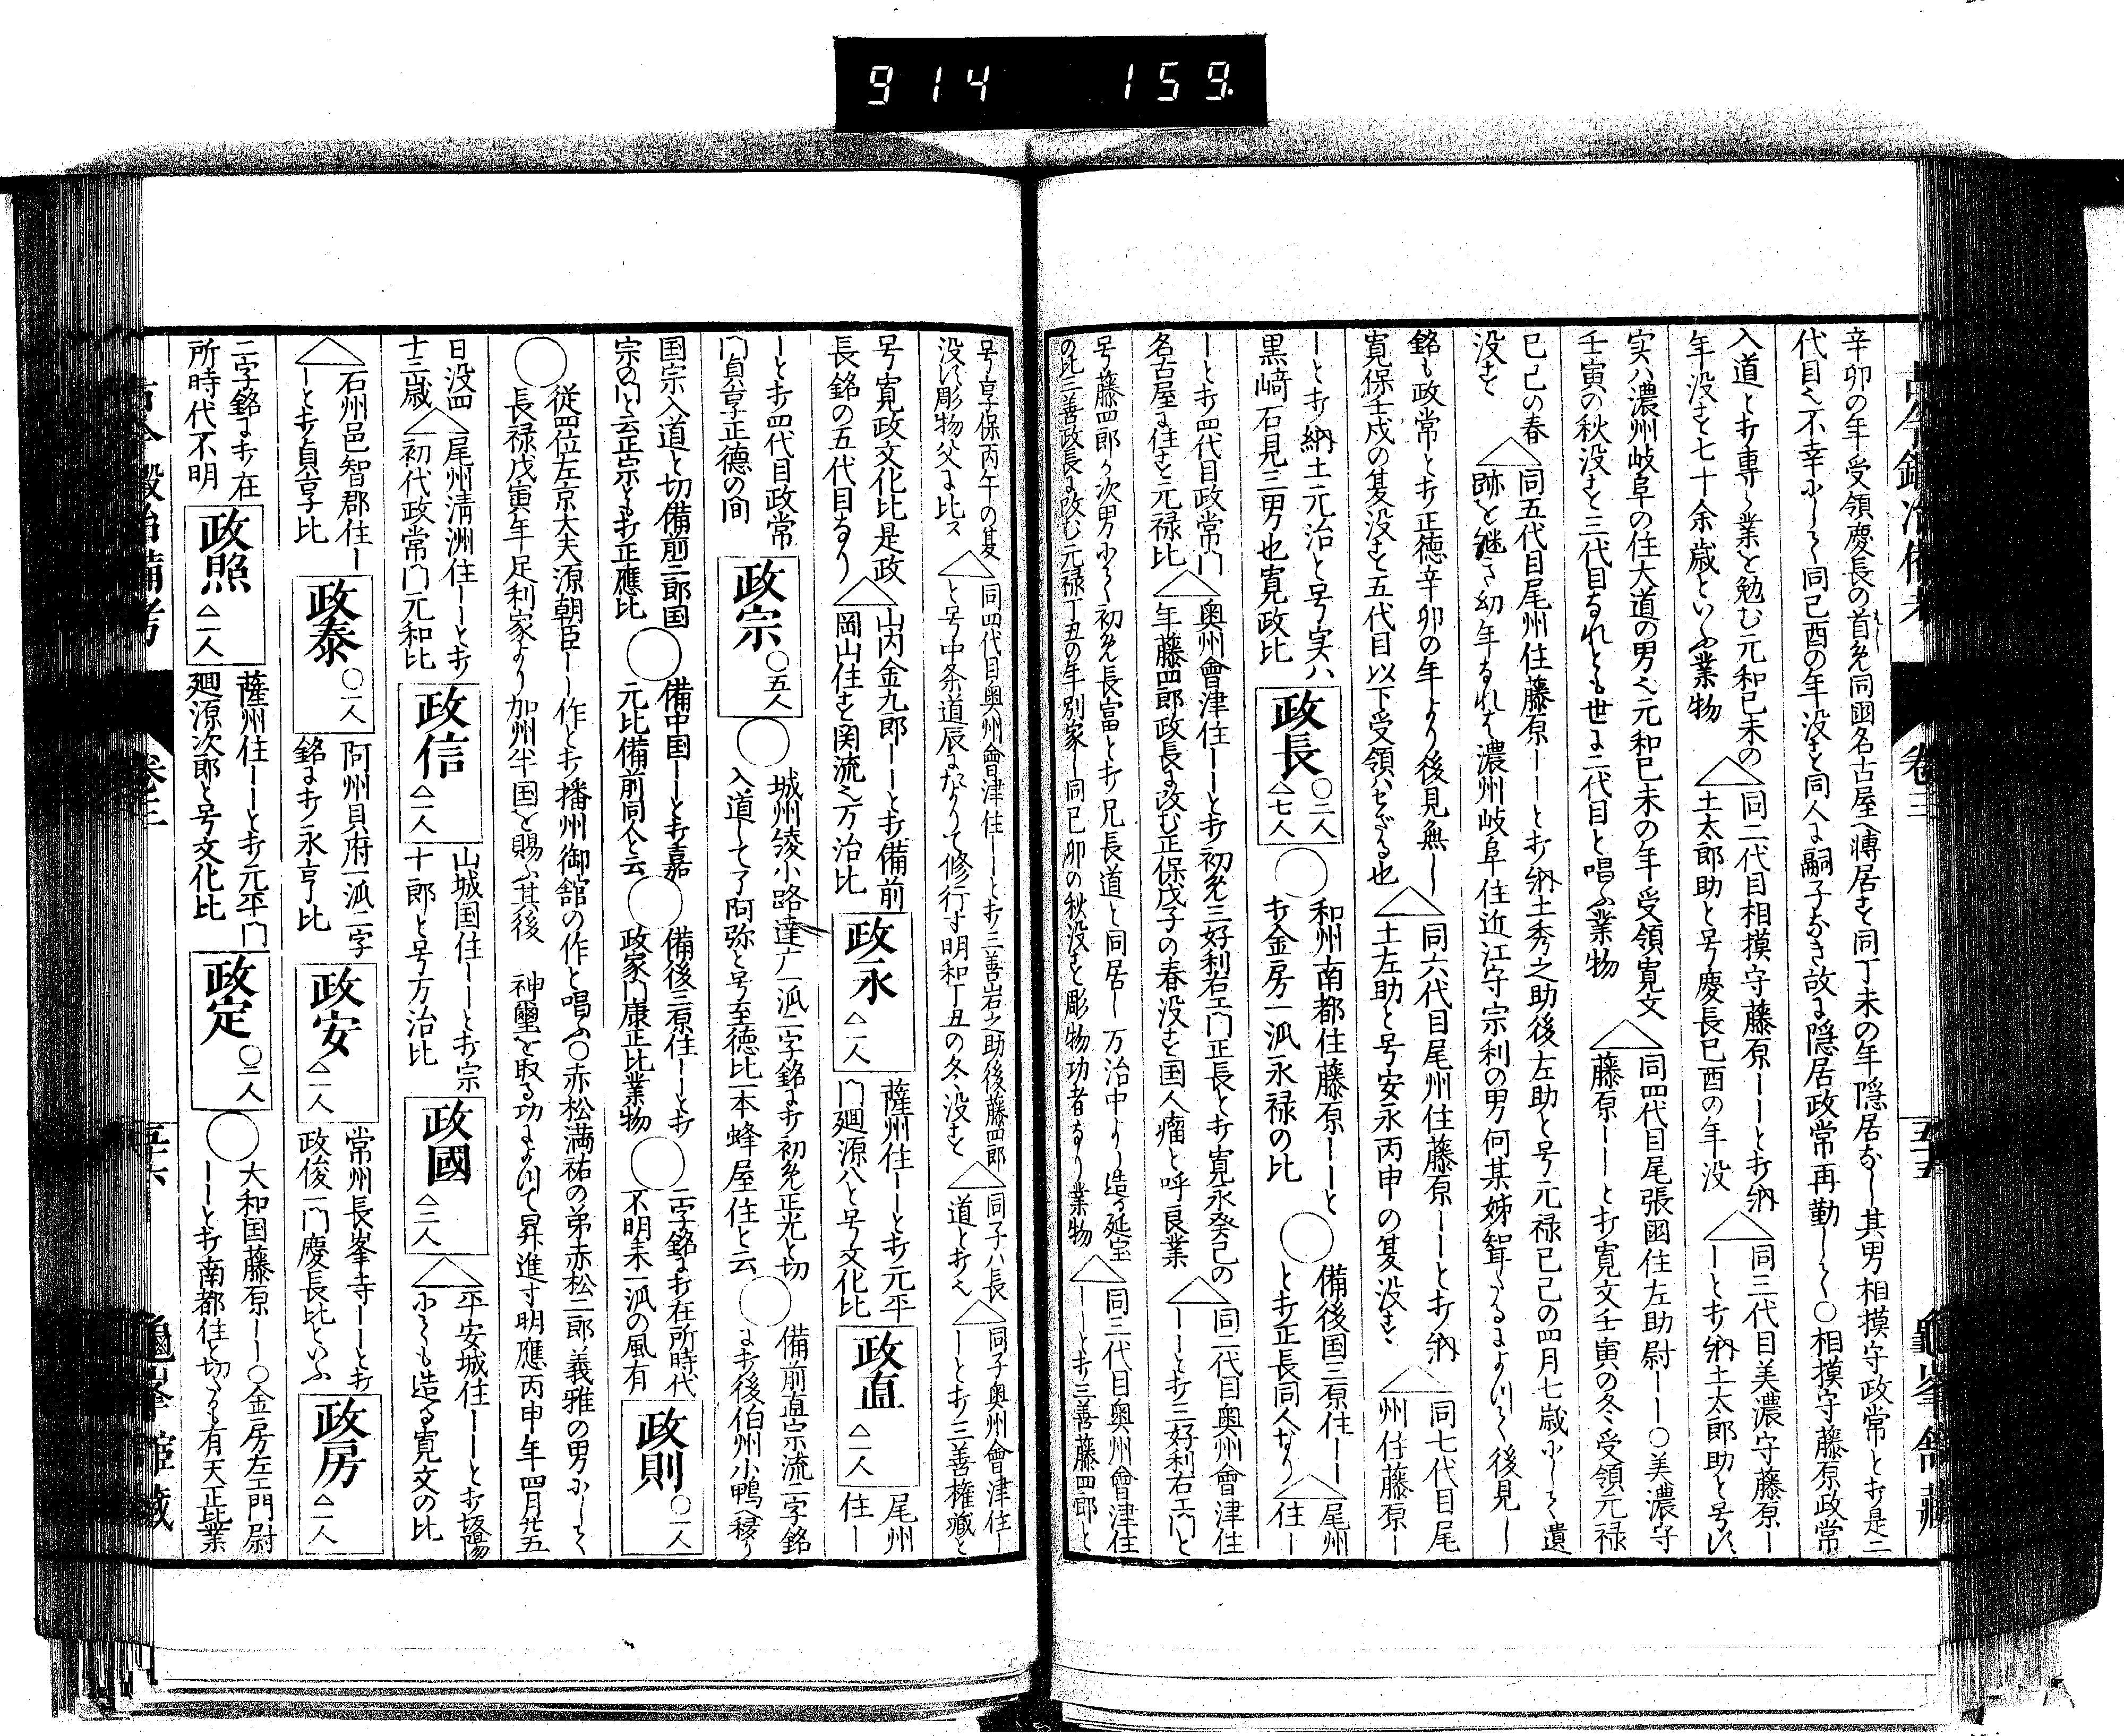 914 159.
古今鍛冶備考 巻三 五十五 龜峯舘藏
辛卯の年受領慶長の首め同國名古屋へ轉居す同丁未の年隠居なし其男相摸守政常と打是二
代目也不幸にして同己酉の年没す同人に嗣子なき故に隠居政常再勤して○相摸守藤原政常
入道と打専ら業を勉む元和己未の
年没す七十余歳といふ業物
△同二代目相摸守藤原ーーと打納
土太郎助と号慶長己酉の年没
△同三代目美濃守藤原ー
ーと打納土太郎助と号す
実ハ濃州岐阜の住大道の男也元和己未の年受領寛文
壬寅の秋没す三代目なれとも世に二代目と唱ふ業物
△同四代目尾張國住左助尉ーー○美濃守
藤原ーーと打寛文壬寅の冬受領元禄
己巳の春
没す
△同五代目尾州住藤原ーーと打納土秀之助後左助と号元禄己巳の四月七歳にして遺
跡を継き幼年なれは濃州岐阜住近江守宗利の男何某姉聟たるによりて後見し
銘も政常と打正徳辛卯の年より後見無し
寛保壬戌の夏没す五代目以下受領ハせざる也
△同六代目尾州住藤原ーーと打納
土左助と号安永丙申の夏没す
△同七代目尾
州住藤原ー
ーと打納土元治と号実ハ
黒﨑石見三男也寛政比
政長 ○二人 △七人
○和州南都住藤原ーーと
打金房一派永禄の比
○備後国三原住ーー
と打正長同人なり
△尾州
住ー
ーと打四代目政常門
名古屋に住す元禄比
△奥州會津住ーーと打初め三好利右エ門正長と打寛永癸巳の
年藤四郎政長に改む正保戊子の春没す国人瘤と呼良業
△同二代目奥州會津住
ーーと打三好利右エ門と
号藤四郎か次男にて初め長富と打兄長道と同居し万治中より造る延宝
の比三善政長に改む元禄丁丑の年別家し同己卯の秋没す彫物功者なり業物
△同三代目奥州會津住
ーーと打三善藤四郎と
号享保丙午の夏
没す彫物父に比ス
△同四代目奥州會津住ーーと打三善岩之助後藤四郎
と号中条道辰になりて修行す明和丁丑の冬没す
△同子ハ長
道と打也
△同子奥州會津住ー
ーと打三善権藏と
号寛政文化比是政
長銘の五代目なり
△山内金九郎ーーと打備前
岡山住す関流也万治比
政永 △一人
薩州住ーーと打元平
門廻源八と号文化比
政直 △一人
尾州
住ー
ーと打四代目政常
門貞享正徳の間
政宗 ○五人
○城州綾小路達广一派二字銘に打初め正光と切
入道して了阿弥と号至徳比一本蜂屋住と云
○備前直宗流二字銘
に打後伯州小鴨移り
国宗入道と切備前三郎国
宗の門と云正宗とも打正應比
○備中国ーーと打嘉
元比備前同人と云
○備後三原住ーーと打
政家門康正比業物
○二字銘に打在所時代
不明末一派の風有
政則 ○一人
○従四位左京大夫源朝臣ーー作と打播州御舘の作と唱ふ○赤松満祐の弟赤松二郎義雅の男にして
長禄戊寅年足利家より加州半国を賜ふ其後 神璽を取る功によりて昇進す明應丙申年四月廿五
日没四
十三歳
△尾州清洲住ーーと打
初代政常門元和比
政信 △一人
山城国住ーーと打宗
十郎と号万治比
政國 △二人
△平安城住ーーと打坂陽
にても造る寛文の比
△石州邑智郡住ー
ーと打貞享比
政泰 ○一人
阿州貝府一派二字
銘に打永享比
政安 △一人
常州長峯寺ーーと打
政俊一門慶長比といふ
政房 △一人
二字銘に打在
所時代不明
政照 △一人
薩州住ーーと打元平門
廻源次郎と号文化比
政定 ○二人
○大和国藤原ーー○金房左エ門尉
ーーと打南都住と切たるも有天正比業
古今鍛冶備考 巻三 五十六 龜峯舘藏